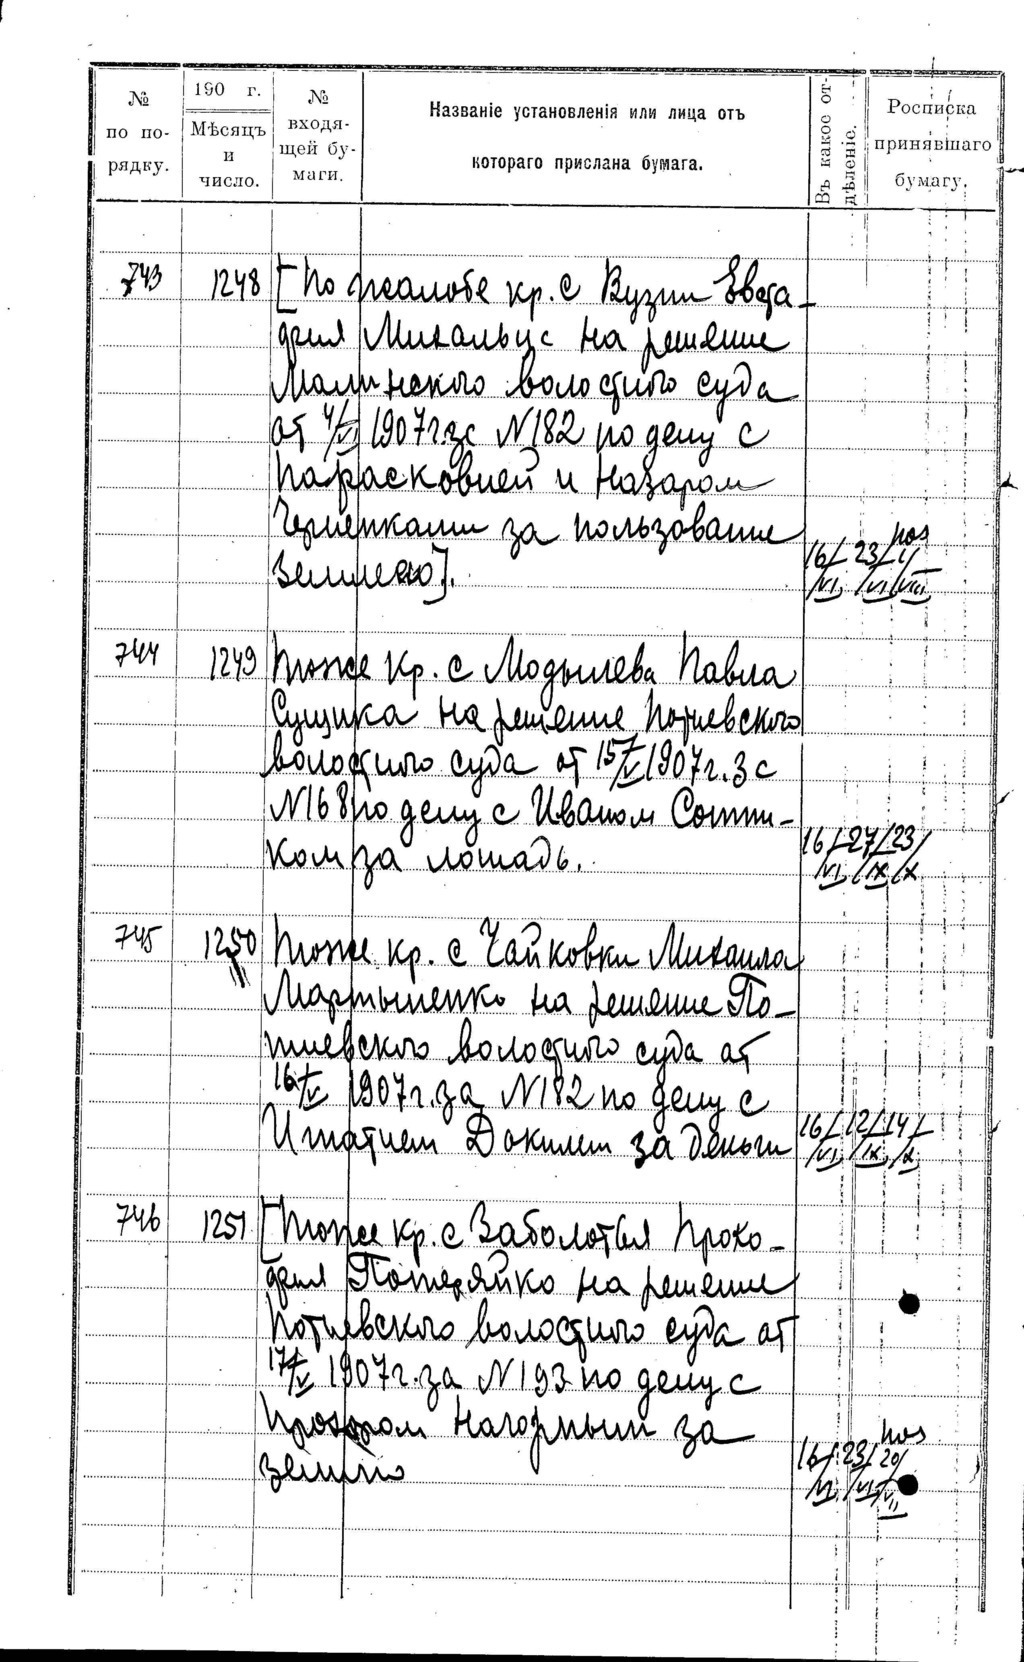 № по порядку.
190 г. Мѣсяцъ и число.
№ входящей бумаги.
Названіе установленія или лица отъ
котораго прислана бумага.
Въ какое отдѣленіе.
Росписка принявшаго бумагу.
743 1248 [По жалобе кр. с Вузни Евста-
фия Михальус на решение
Малинского волостного суда
от 4/VI 1907г. за N182 по делу с
Парасковией и Назаром
Черненками за пользование
землею].
16/VI 23/VI 1/VIII
744 1249 Тоже кр. с Модылева Павла
Сущика на решение Потиевского
волостного суда от 15/V 1907г. за
N168 по делу с Иваном Сотни-
ком за лошадь.
16/VI 27/IX 23/X
745 1250 Тоже кр. с Чайковки Михаила
Мартыненко на решение По-
тиевского волостного суда от
16/V 1907г. за N182 по делу с
Игнатием за деньги
16/VI 12/IX 14/X
746 1251 [Тоже кр. с Заболотья Проко-
фия Потеряйко на решение
Потиевского волостного суда от
17/V 1907г. за N193 по делу с
Нагорным за
землю
16/VI 23/VI 20/VII